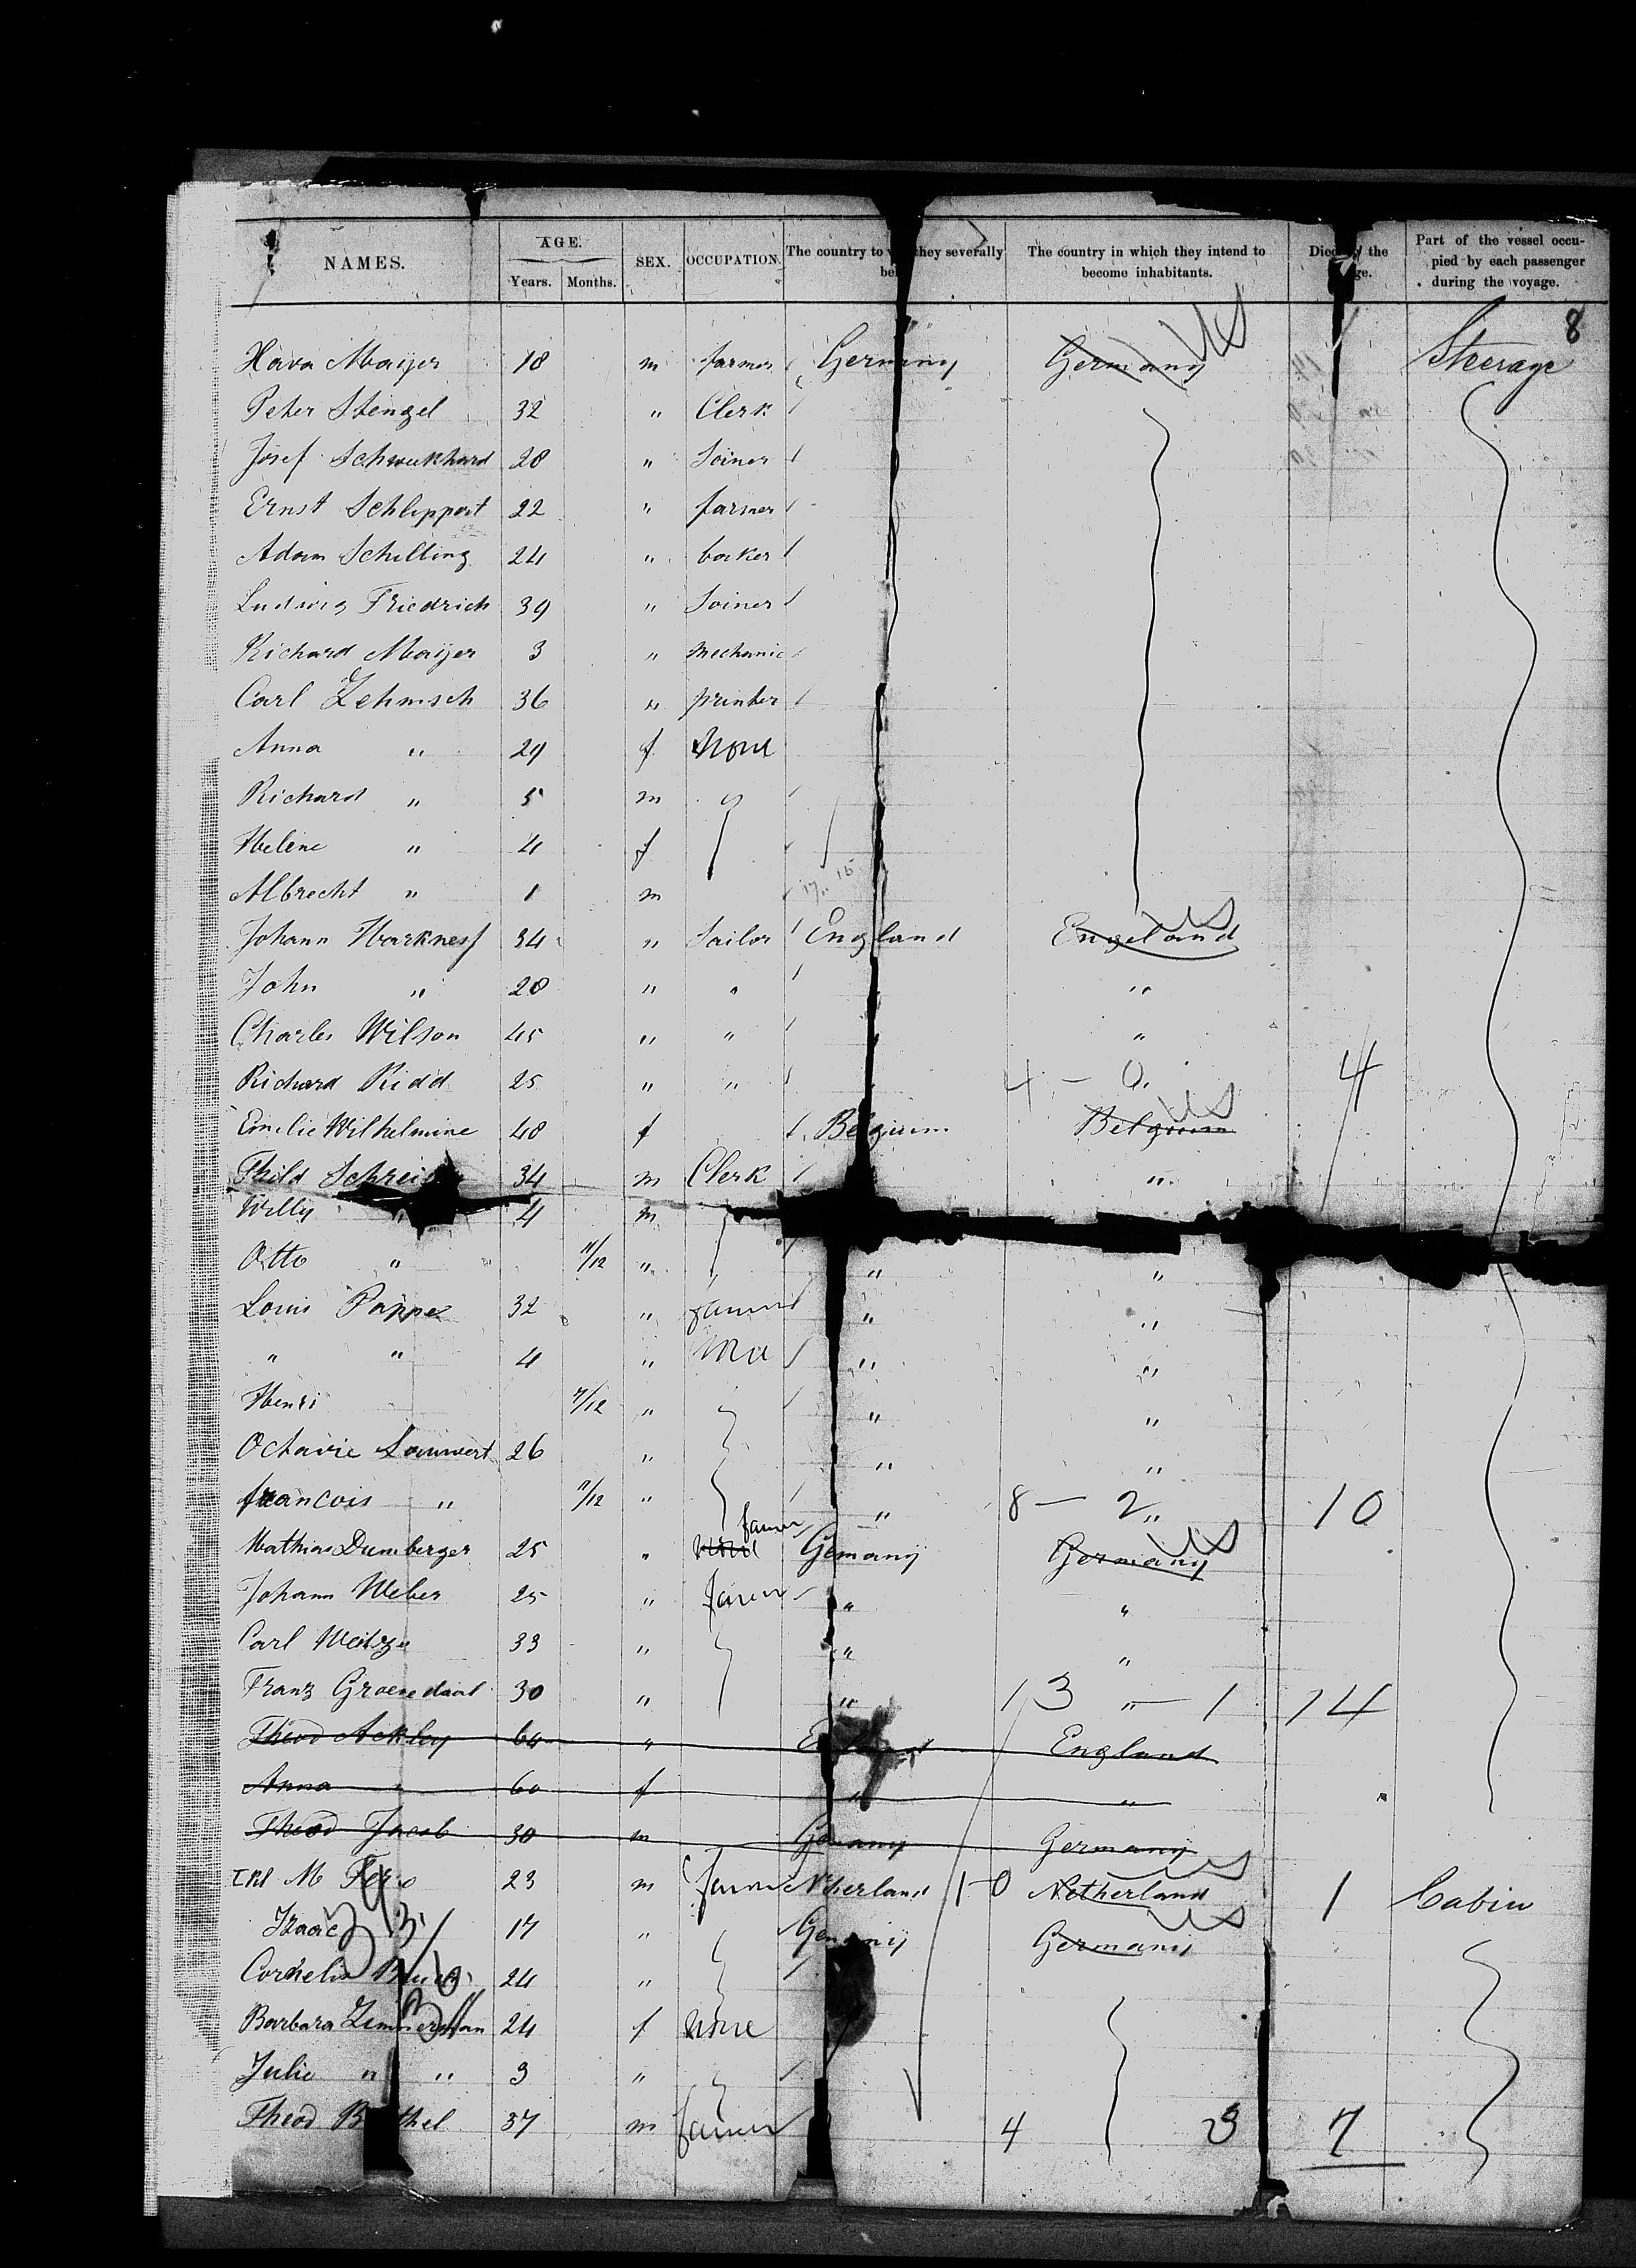 NAMES. AGE. Years. Months. SEX. OCCUPATION. The country to they severally The country in which they intend to become inhabitants. the Part of the vessel occupied by each passenger during the voyage.
8
Mayer 18 m farmer Germany Germany US Steerage
Peter Stengel 32 " Clerk
Josef Schweikhard 28 " Joiner
Ernst Schlippert 22 " farmer
Adam Schilling 24 " baker
Ludwig Friedrich 39 " Joiner
Richard Mayer 3 " mechanic
Carl Zehmsch 36 " printer
Anna " 29 f None
Richard " 5 m "
Helene " 4 f
Albrecht " 1 m
Johann Harkness 34 " Sailor England England US
John " 28 " " "
Charles Wilson 45 " " "
Richard Kidd 25 " " 4 - 0 4
Emilie Wilhelmine 48 f Belgium Belgium US
34 m Clerk "
Willy " 4 m
Otto " 11/12 " " "
Louis 32 " farmer " "
" " 4 " " "
Henri " " "
Octavie 26 " " "
francois " 11/12 " " 8 - 2 " 10
Mathias Dumberger 25 " farmer Gemany Germany US
Johann Weber 25 " farmer " "
Carl 33 " " "
Franz Groenedaal 30 " " 13 " - 1 14
Theod Ackley 64 " England
Anna " 60 f " "
Theod Jacob 30 m Germany Germany
M 23 m farmer Netherland 1-0 Netherland US 1 Cabin
Isaac 17 " Germany Germany US
Cornelis 24 "
Barbara Zimmerman 24 f None
Julie " " 3 "
Theod 37 m farmer 4 3 7